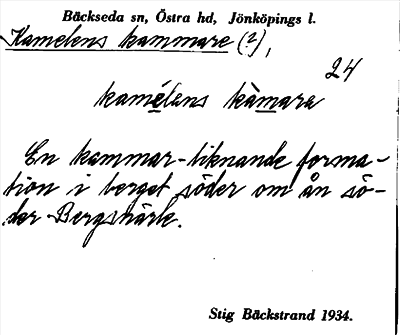 Bäckseda sn, Östra hd, Jönköpings l.
Kamelens kammare (?),
24
kamélens kàmara
En kammar-liknande forma-
tion i berget söder om ån sö-
der Bergsnärle.
Stig Bäckstrand 1934.